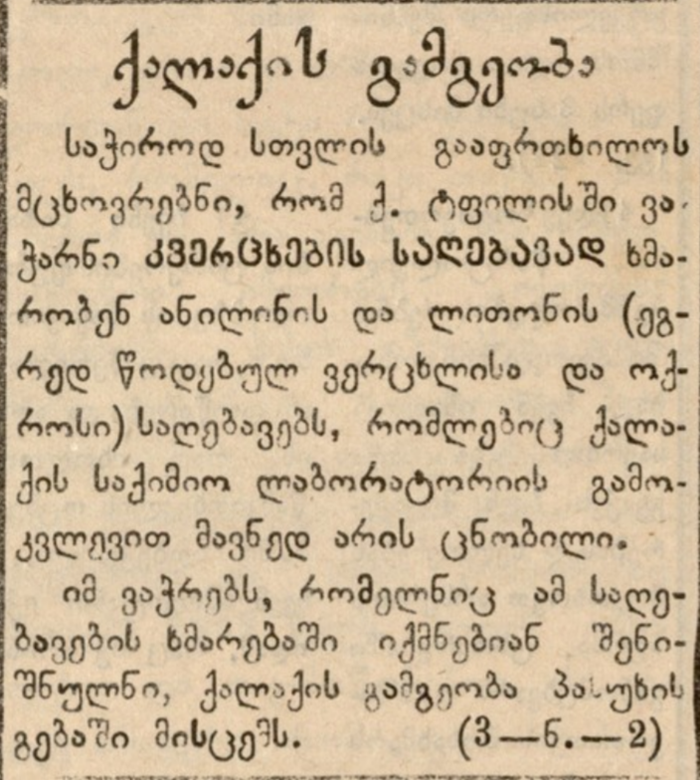 ქალაქის გამგეობა
საჭიროდ სთვლის გააფრთხილოს
მცხოვრებნი, რომ ქ. ტფილისში ვა-
ჭარნი კვერცხების საღებავად ხმა-
რობენ ანილინის და ლითონის (ეგ-
რედ წოდებულ ვერცხლისა და ოქ-
როსი) საღებავებს, რომლებიც ქალა-
ქის საქიმიო ლაბორატორიის გამო-
კვლევით მავნედ არის ცნობილი.
იმ ვაჭრებს, რომელნიც ამ საღე-
ბავების ხმარებაში იქმნებიან შენი-
შნულნი, ქალაქის გამგეობა პასუხის
გებაში მისცემს. (3—ნ.—2)